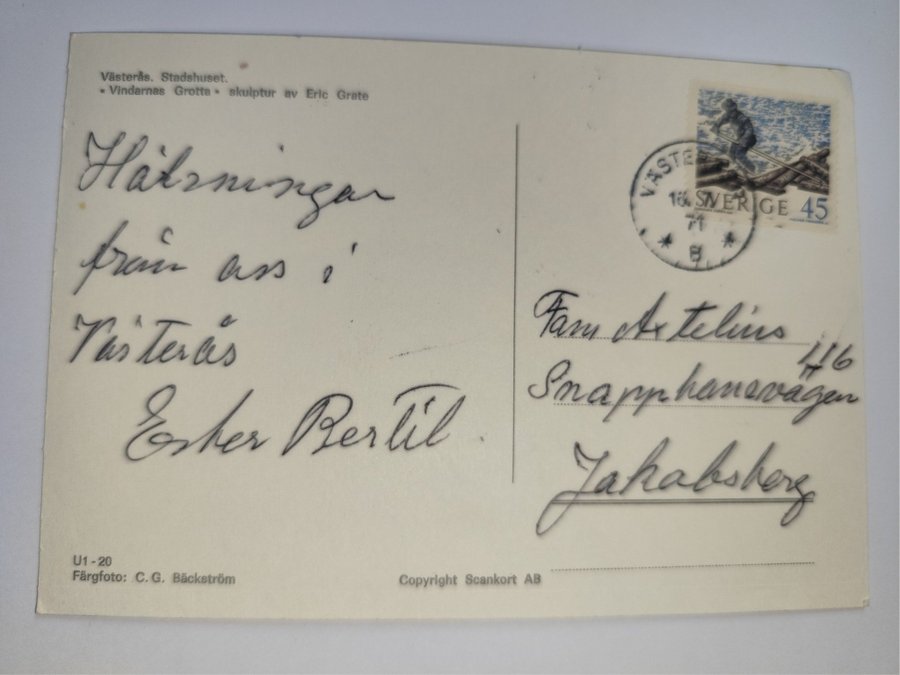 Västerås. Stadshuset.
«Vindarnas Grotta» skulptur av Eric Grate
Hälsningar
från oss i
Västerås
Ester Bertil
SVERIGE 45
71
* 8 *
Fam Axtelius
Snapphanevägen 116
Jakobsberg
U1-20
Färgfoto: C. G. Bäckström
Copyright Scankort AB